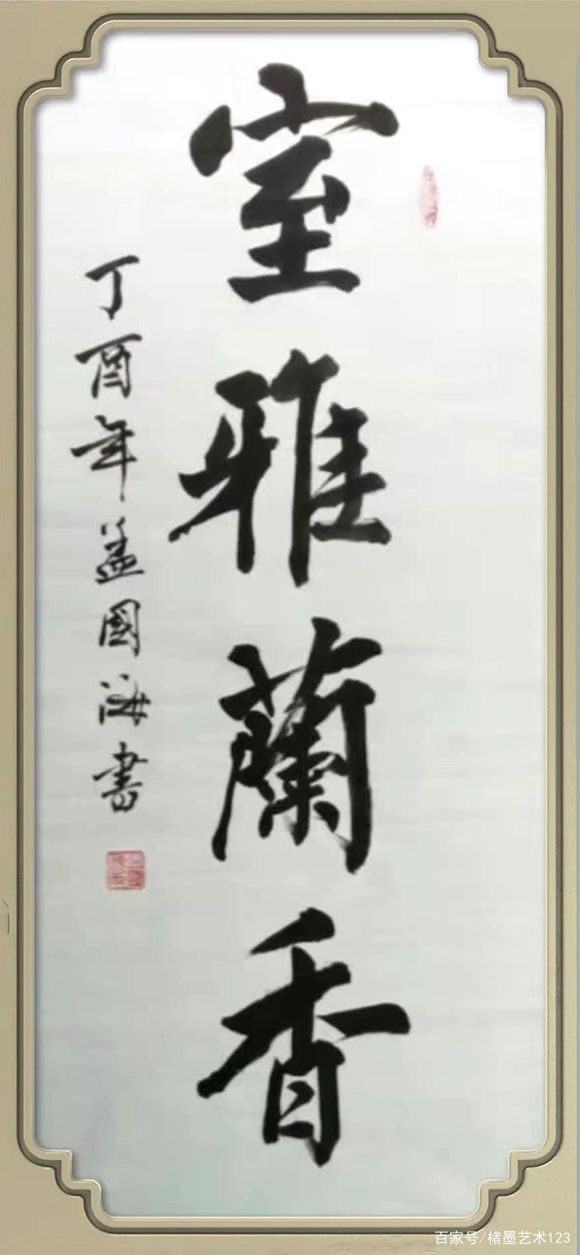 室雅蘭香
丁酉年孟國海書
百家号/楮墨艺术123